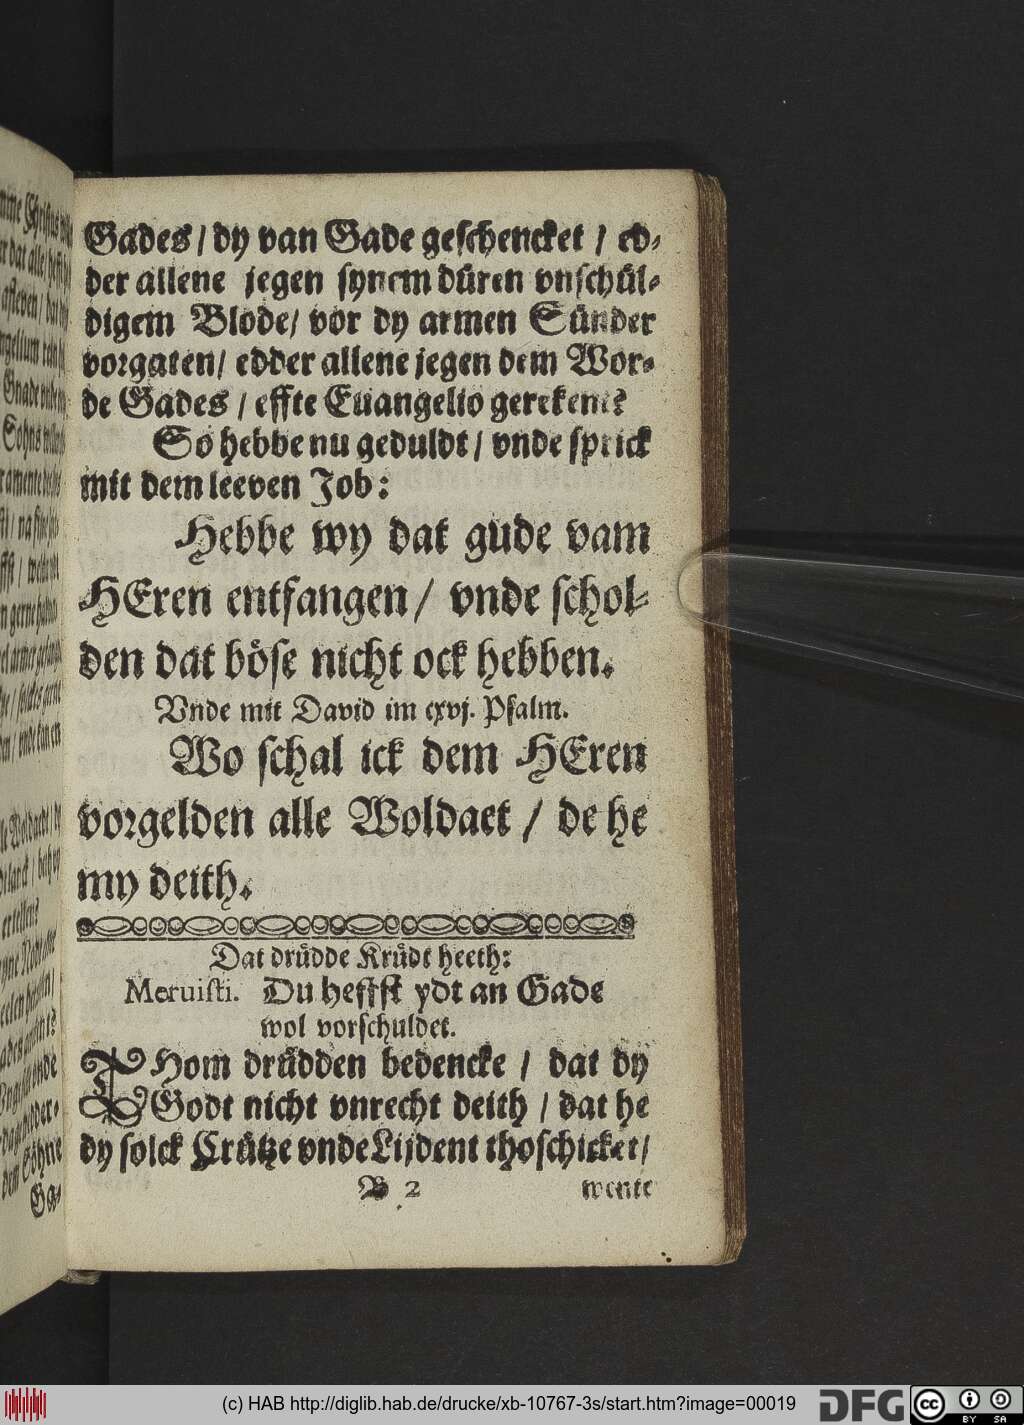 Gades / dy van Gade geschencket / ed-
der allene jegen synem düren vnschül-
digem Blode / vör dy armen Sünder
vorgaten / edder allene jegen dem Wor-
de Gades / effte Euangelio gerekent?
So hebbe nu geduldt / vnde sprick
mit dem leeven Job:
Hebbe wy dat gude vam
HEren entfangen / vnde schol-
den dat böse nicht ock hebben.
Vnde mit David im cxvj. Psalm.
Wo schal ick dem HEren
vorgelden alle Woldaet / de he
my deith.
Dat drüdde Krüdt heeth:
Meruisti. Du heffst ydt an Gade
wol vorschuldet.
THom drüdden bedencke / dat dy
Godt nicht vnrecht deith / dat he
dy solck Crütze vnde Lijdent thoschicket /
B 2 wente
(c) HAB http://diglib.hab.de/drucke/xb-10767-3s/start.htm?image=00019
DFG
cc BY SA